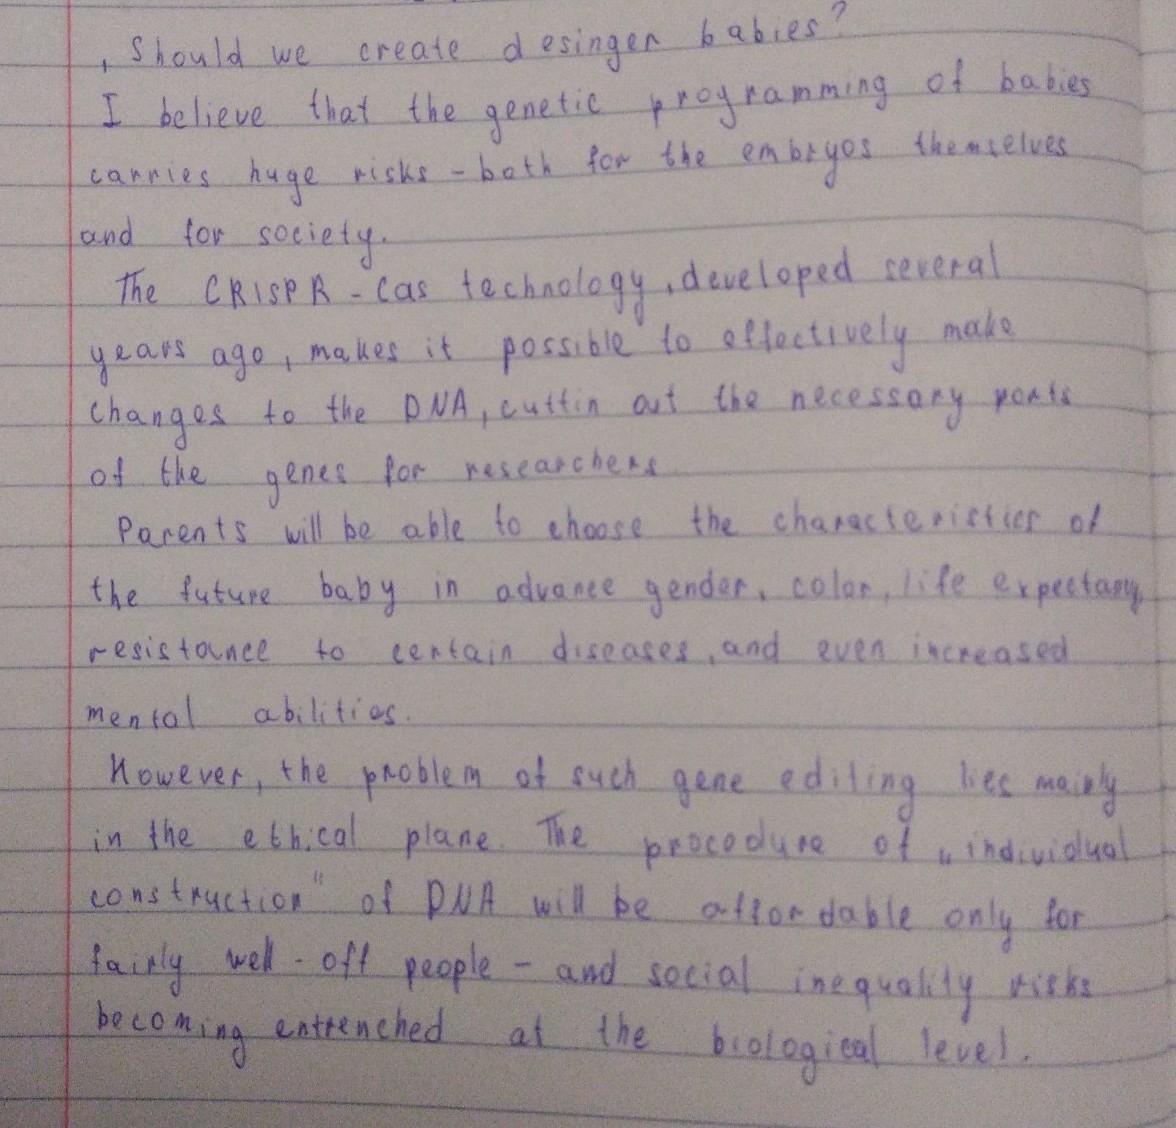 , Should we create desinger babies?
I believe that the genetic programming of babies
carries huge risks - both for the embryos themselves
and for society.
The CRISPR - Cas technology, developed several
years ago, makes it possible to effectively make
changes to the DNA, cuttin out the necessary parts
of the genes for researchers
Parents will be able to choose the characteristics of
the future baby in advance gender, color, life expectany,
resistance to certain diseases, and even increased
mental abilities.
However, the problem of such gene editing lies mainly
in the ethical plane. The procedure of „individual
construction" of DNA will be affordable only for
fairly well - off people - and social inequality risks
becoming entrenched at the biological level.